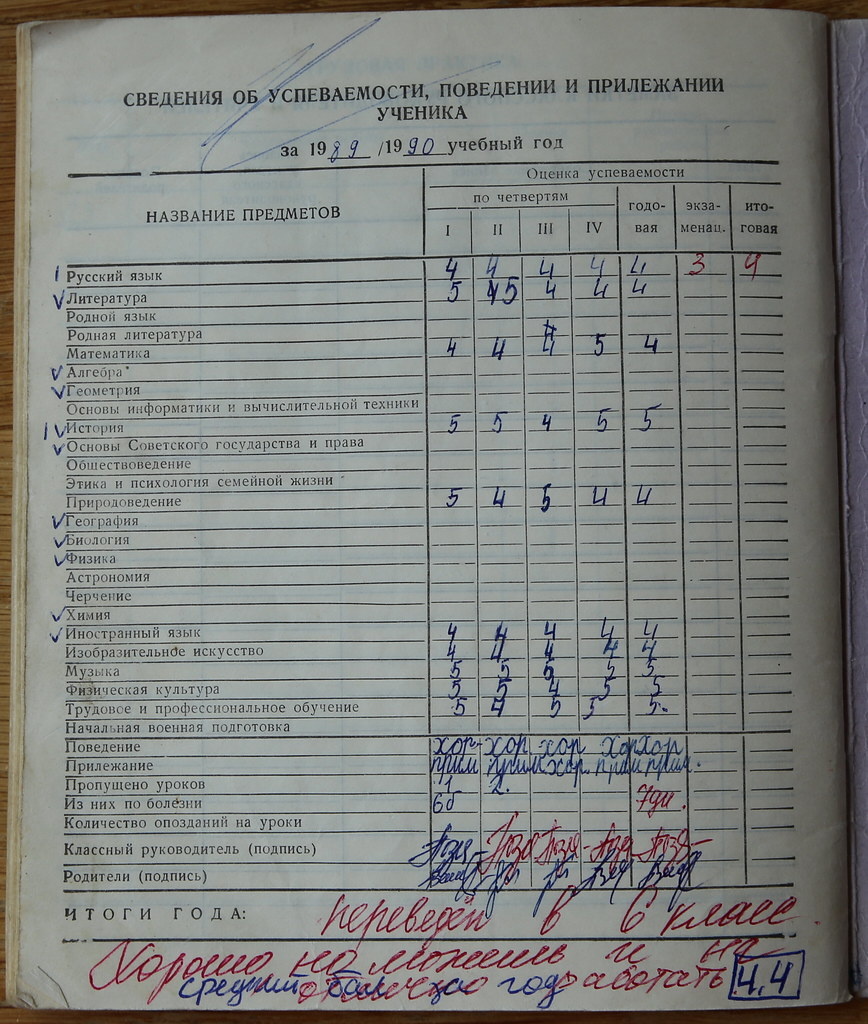 СВЕДЕНИЯ ОБ УСПЕВАЕМОСТИ, ПОВЕДЕНИИ И ПРИЛЕЖАНИИ
УЧЕНИКА
за 1989/1990 учебный год
НАЗВАНИЕ ПРЕДМЕТОВ
Оценка успеваемости
по четвертям
I II III IV
годо-
вая
экза-
менац.
ито-
говая
Русский язык 4 4 4 4 4 3 4
Литература 5 45 4 4 4
Родной язык
Родная литература
Математика 4 4 4 5 4
Алгебра
Геометрия
Основы информатики и вычислительной техники
История 5 5 4 5 5
Основы Советского государства и права
Обществоведение
Этика и психология семейной жизни
Природоведение 5 4 5 4 4
География
Биология
Физика
Астрономия
Черчение
Химия
Иностранный язык 4 4 4 4 4
Изобразительное искусство 4 4 4 4 4
Музыка 5 5 5 5 5
Физическая культура 5 5 4 5 5
Трудовое и профессиональное обучение 5 4 5 5 5.
Начальная военная подготовка
Поведение хор- хор хор хор хор
Прилежание прим прим хор. прим прим.
Пропущено уроков 1 2.
Из них по болезни 6б 7дн.
Количество опозданий на уроки
Классный руководитель (подпись)
Родители (подпись)
ИТОГИ ГОДА: переведён в 6 класс.
Хорошо, но можешь и на
отлично работать
средний бал за год 4,4